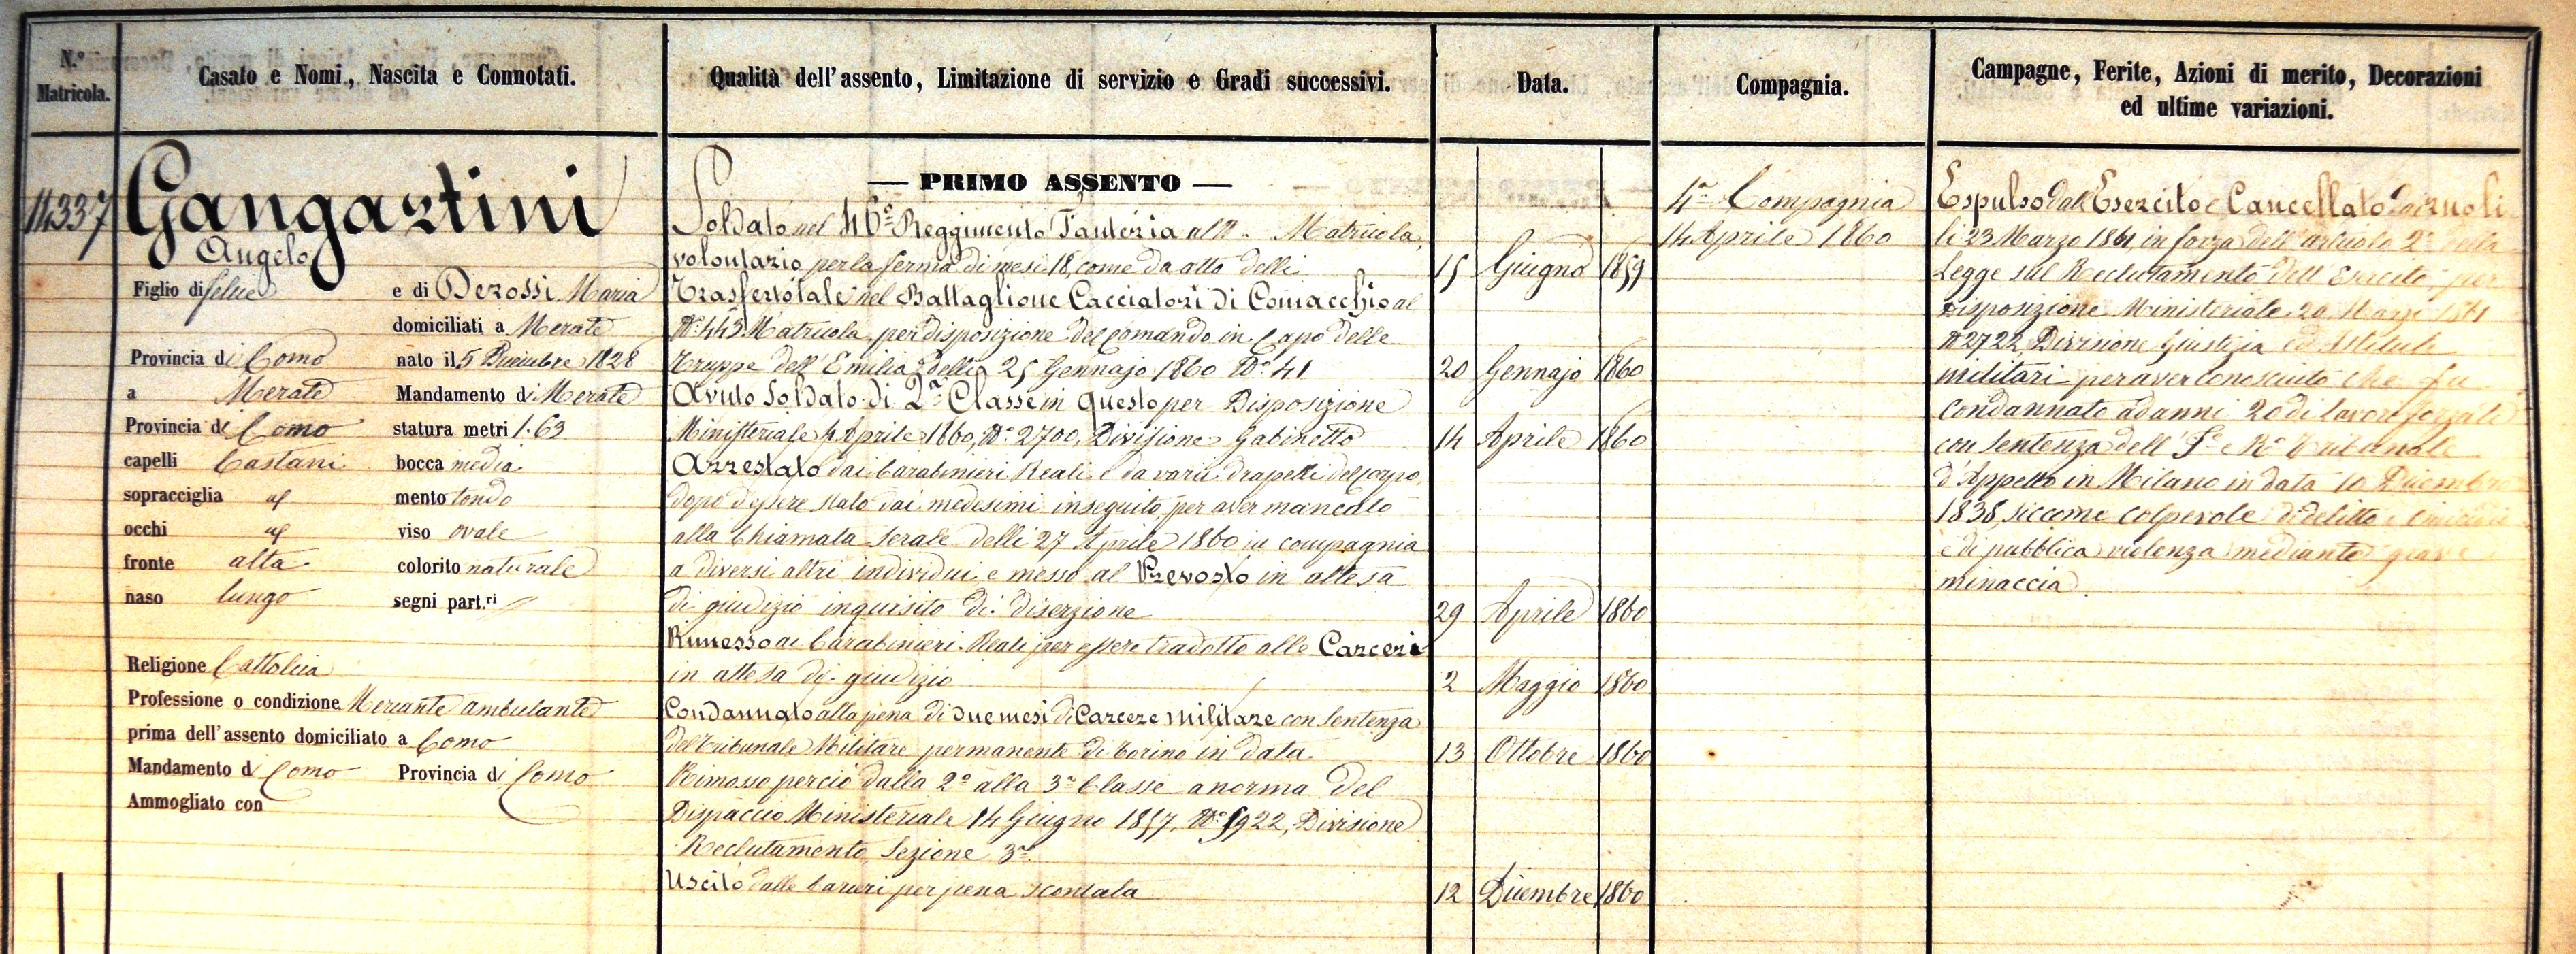 N.° Matricola.
Casato e Nomi, Nascita e Connotati.
Qualità dell'assento, Limitazione di servizio e Gradi successivi.
Data.
Compagnia.
Campagne, Ferite, Azioni di merito, Decorazioni
ed ultime variazioni.
14337
Gangartini
Angelo
Figlio di Felice e di Derossi Maria
domiciliati a Merate
Provincia di Como nato il 5 Dicembre 1828
a Merate Mandamento di Merate
Provincia di Como statura metri 1.63
capelli Castani bocca media
sopracciglia id mento tondo
occhi id viso ovale
fronte alta colorito naturale
naso lungo segni part.ri
Religione Cattolica
Professione o condizione Merciante ambulante
prima dell'assento domiciliato a Como
Mandamento di Como Provincia di Como
Ammogliato con
— PRIMO ASSENTO —
Soldato nel 46° Reggimento Fanteria al N° Matricola,
volontario per la ferma di mesi 18, come da atto delli 15 Giugno 1859
Trasferto tale nel Battaglione Cacciatori di Comacchio al
N° 443 Matricola, per disposizione del Comando in Capo delle
Truppe dell'Emilia delli 25 Gennajo 1860 N° 41 20 Gennajo 1860
Avuto Soldato di 2a Classe in questo per Disposizione
Ministeriale 4 Aprile 1860, N° 2700, Divisione Gabinetto 14 Aprile 1860
Arrestato dai Carabinieri Reali e da varii drapelli del corpo,
dopo d'essere stato dai medesimi inseguito, per aver mancato
alla Chiamata Serale delli 27 Aprile 1860 in compagnia
a diversi altri individui, e messo al Prevosto in attesa
di giudizio inquisito di diserzione 29 Aprile 1860
Rimesso ai Carabinieri Reali per essere tradotto alle Carceri
in attesa di giudizio 2 Maggio 1860
Condannato alla pena di due mesi di Carcere Militare con Sentenza
del Tribunale Militare permanente di Torino in data 13 Ottobre 1860
Rimosso perciò dalla 2a alla 3a Classe a norma del
Dispaccio Ministeriale 14 Giugno 1857, N° 5922, Divisione
Reclutamento, Sezione 3a
Uscito dalle Carceri per pena scontata 12 Dicembre 1860
4a Compagnia
14 Aprile 1860
Espulso dall'Esercito e Cancellato dai ruoli
li 23 Marzo 1861, in forza dell'articolo 2° della
Legge sul Reclutamento dell'Esercito, per
disposizione Ministeriale 20 Marzo 1861
N° 2722, Divisione Giustizia ed Istituti
militari, per aver conosciuto che fu
condannato ad anni 20 di lavori forzati
con Sentenza dell' I° e R° Tribunale
d'Appello in Milano in data 10 Dicembre
1838, siccome colpevole di delitto
e di pubblica violenza mediante grave
minaccia